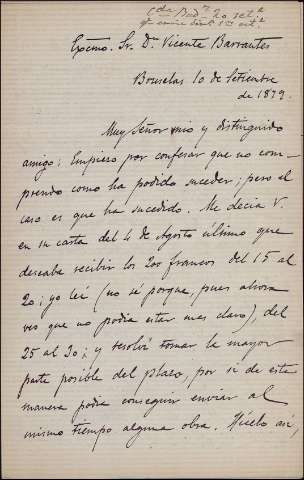 Excmo. Sr. Dn. Vicente Barrantes
Bruselas 10 de Setiembre
de 1879.
Muy Señor mio y distinguido
amigo: Empiezo por confesar que no com-
prendo como ha podido suceder; pero el
caso es que ha sucedido. Me decia V.
en su carta del 4 de Agosto último que
deseaba recibir los 200 francos del 15 al
20; yo leí (no sé porque, pues ahora
veo que no podia estar mas claro), del
25 al 30; y resolví tomar la mayor
parte posible del plazo, por si de esta
manera podia conseguir enviar al
mismo tiempo alguna obra. Hícelo así,